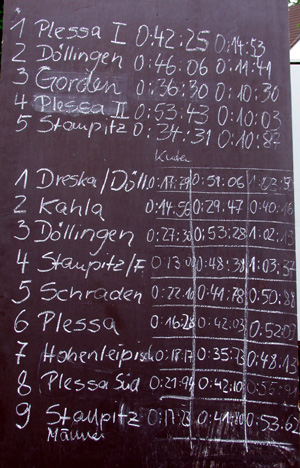 1 Plessa I 0:42:25 0:14:53
2 Döllingen 0:46:06 0:11:41
3 Gorden 0:36:30 0:10:30
4 Plessa II 0:53:43 0:10:03
5 Staupitz 0:34:31 0:10:87
1 Dreska/Döll. 0:17:79 0:51:06
2 Kahla 0:14:56 0:29.47 0:40:
3 Döllingen 0:27:30 0:53:28 1:02:13
4 Staupitz/F 0:48:39 1:03:37
5 Schraden 0:22:10 0:41:78 0:50:88
6 Plessa 0:16:28 0:42:03 0:52:
7 Hohenleipisch 0:18:17 0:35:23 0:48.13
8 Plessa Süd 0:21:94 0:42:10
9 Staupitz 0:17:23 0:53.62
Männer